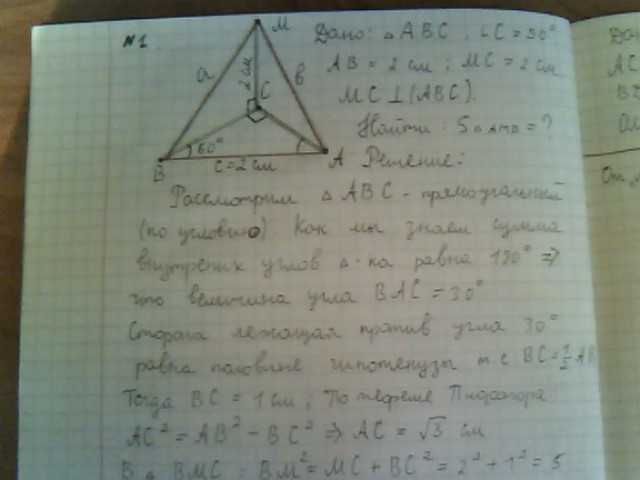 №1
M
Дано: △ABC; ∠C = 90°
a
2 см
в
AB = 2 см; MC = 2 см
C
MC ⊥ (ABC).
Найти: S△AMB = ?
60°
B
c = 2 см
A
Решение:
Рассмотрим △ABC - прямоугольный
(по условию) Как мы знаем сумма
внутрених углов △-ка равна 180° ⇒
что величина угла BAC = 30°
Сторона лежащая против угла 30°
равна половине гипотенузы т.е BC = 1/2 AB
Тогда BC = 1 см; По теореме Пифагора
AC² = AB² - BC² ⇒ AC = √3 см
В △ BMC: BM² = MC + BC² = 2² + 1² = 5
Дан
AC